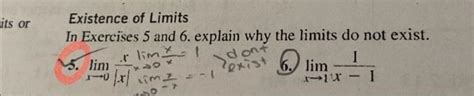 its or
Existence of Limits
In Exercises 5 and 6, explain why the limits do not exist.
5. lim x→0 x/|x| lim x→0 x/x = 1 lim x→0 x/-x = -1 } dont exist 6. lim x→1 1/(x - 1)